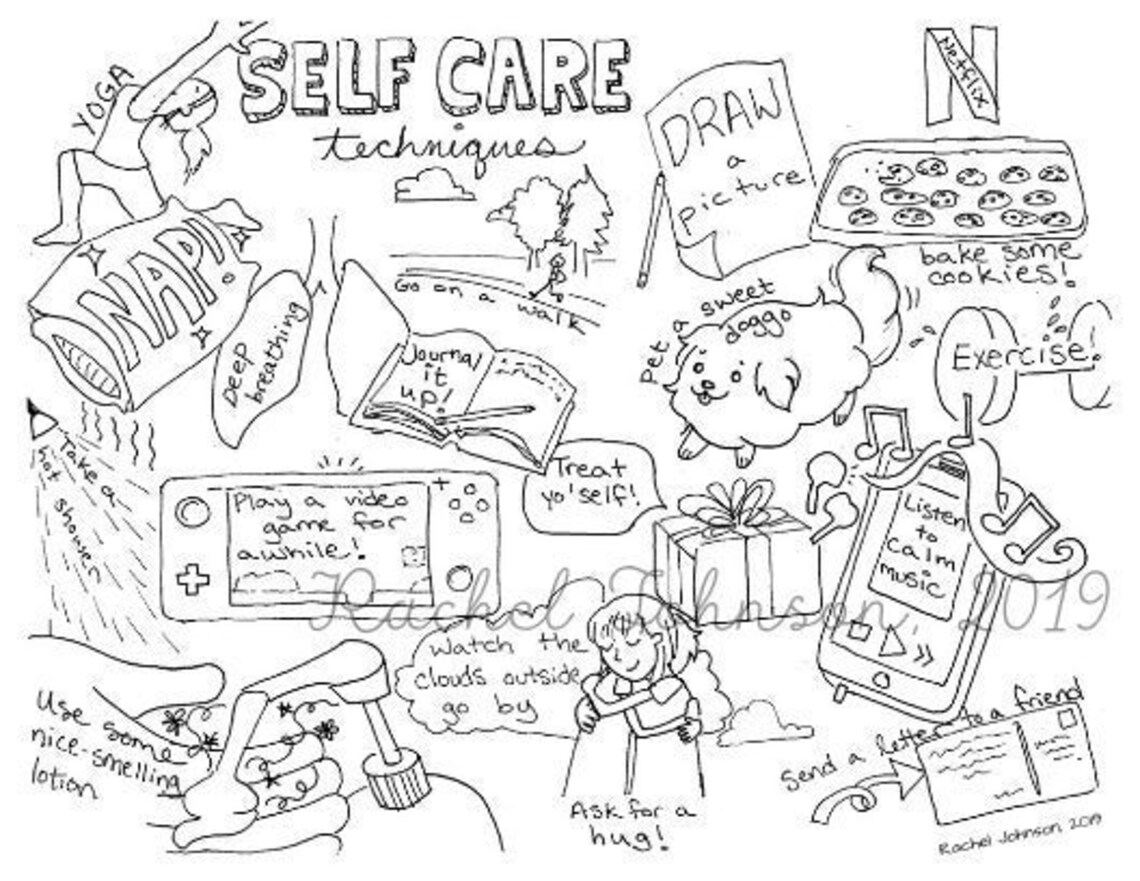 SELF CARE
techniques
YOGA
DRAW
a
picture!
Netflix
bake some
cookies!
NAP!
Deep
breathing
Go on a walk
Journal
it
up!
Pet a sweet
doggo
Exercise!
Take a
hot shower
Play a video
game for
awhile!
Treat
yo'self!
Listen
to
calm
music
Rachel Johnson 2019
Watch the
clouds outside
go by
Use some
nice-smelling
lotion
Ask for a
hug!
Send a letter to a friend
Rachel Johnson 2019